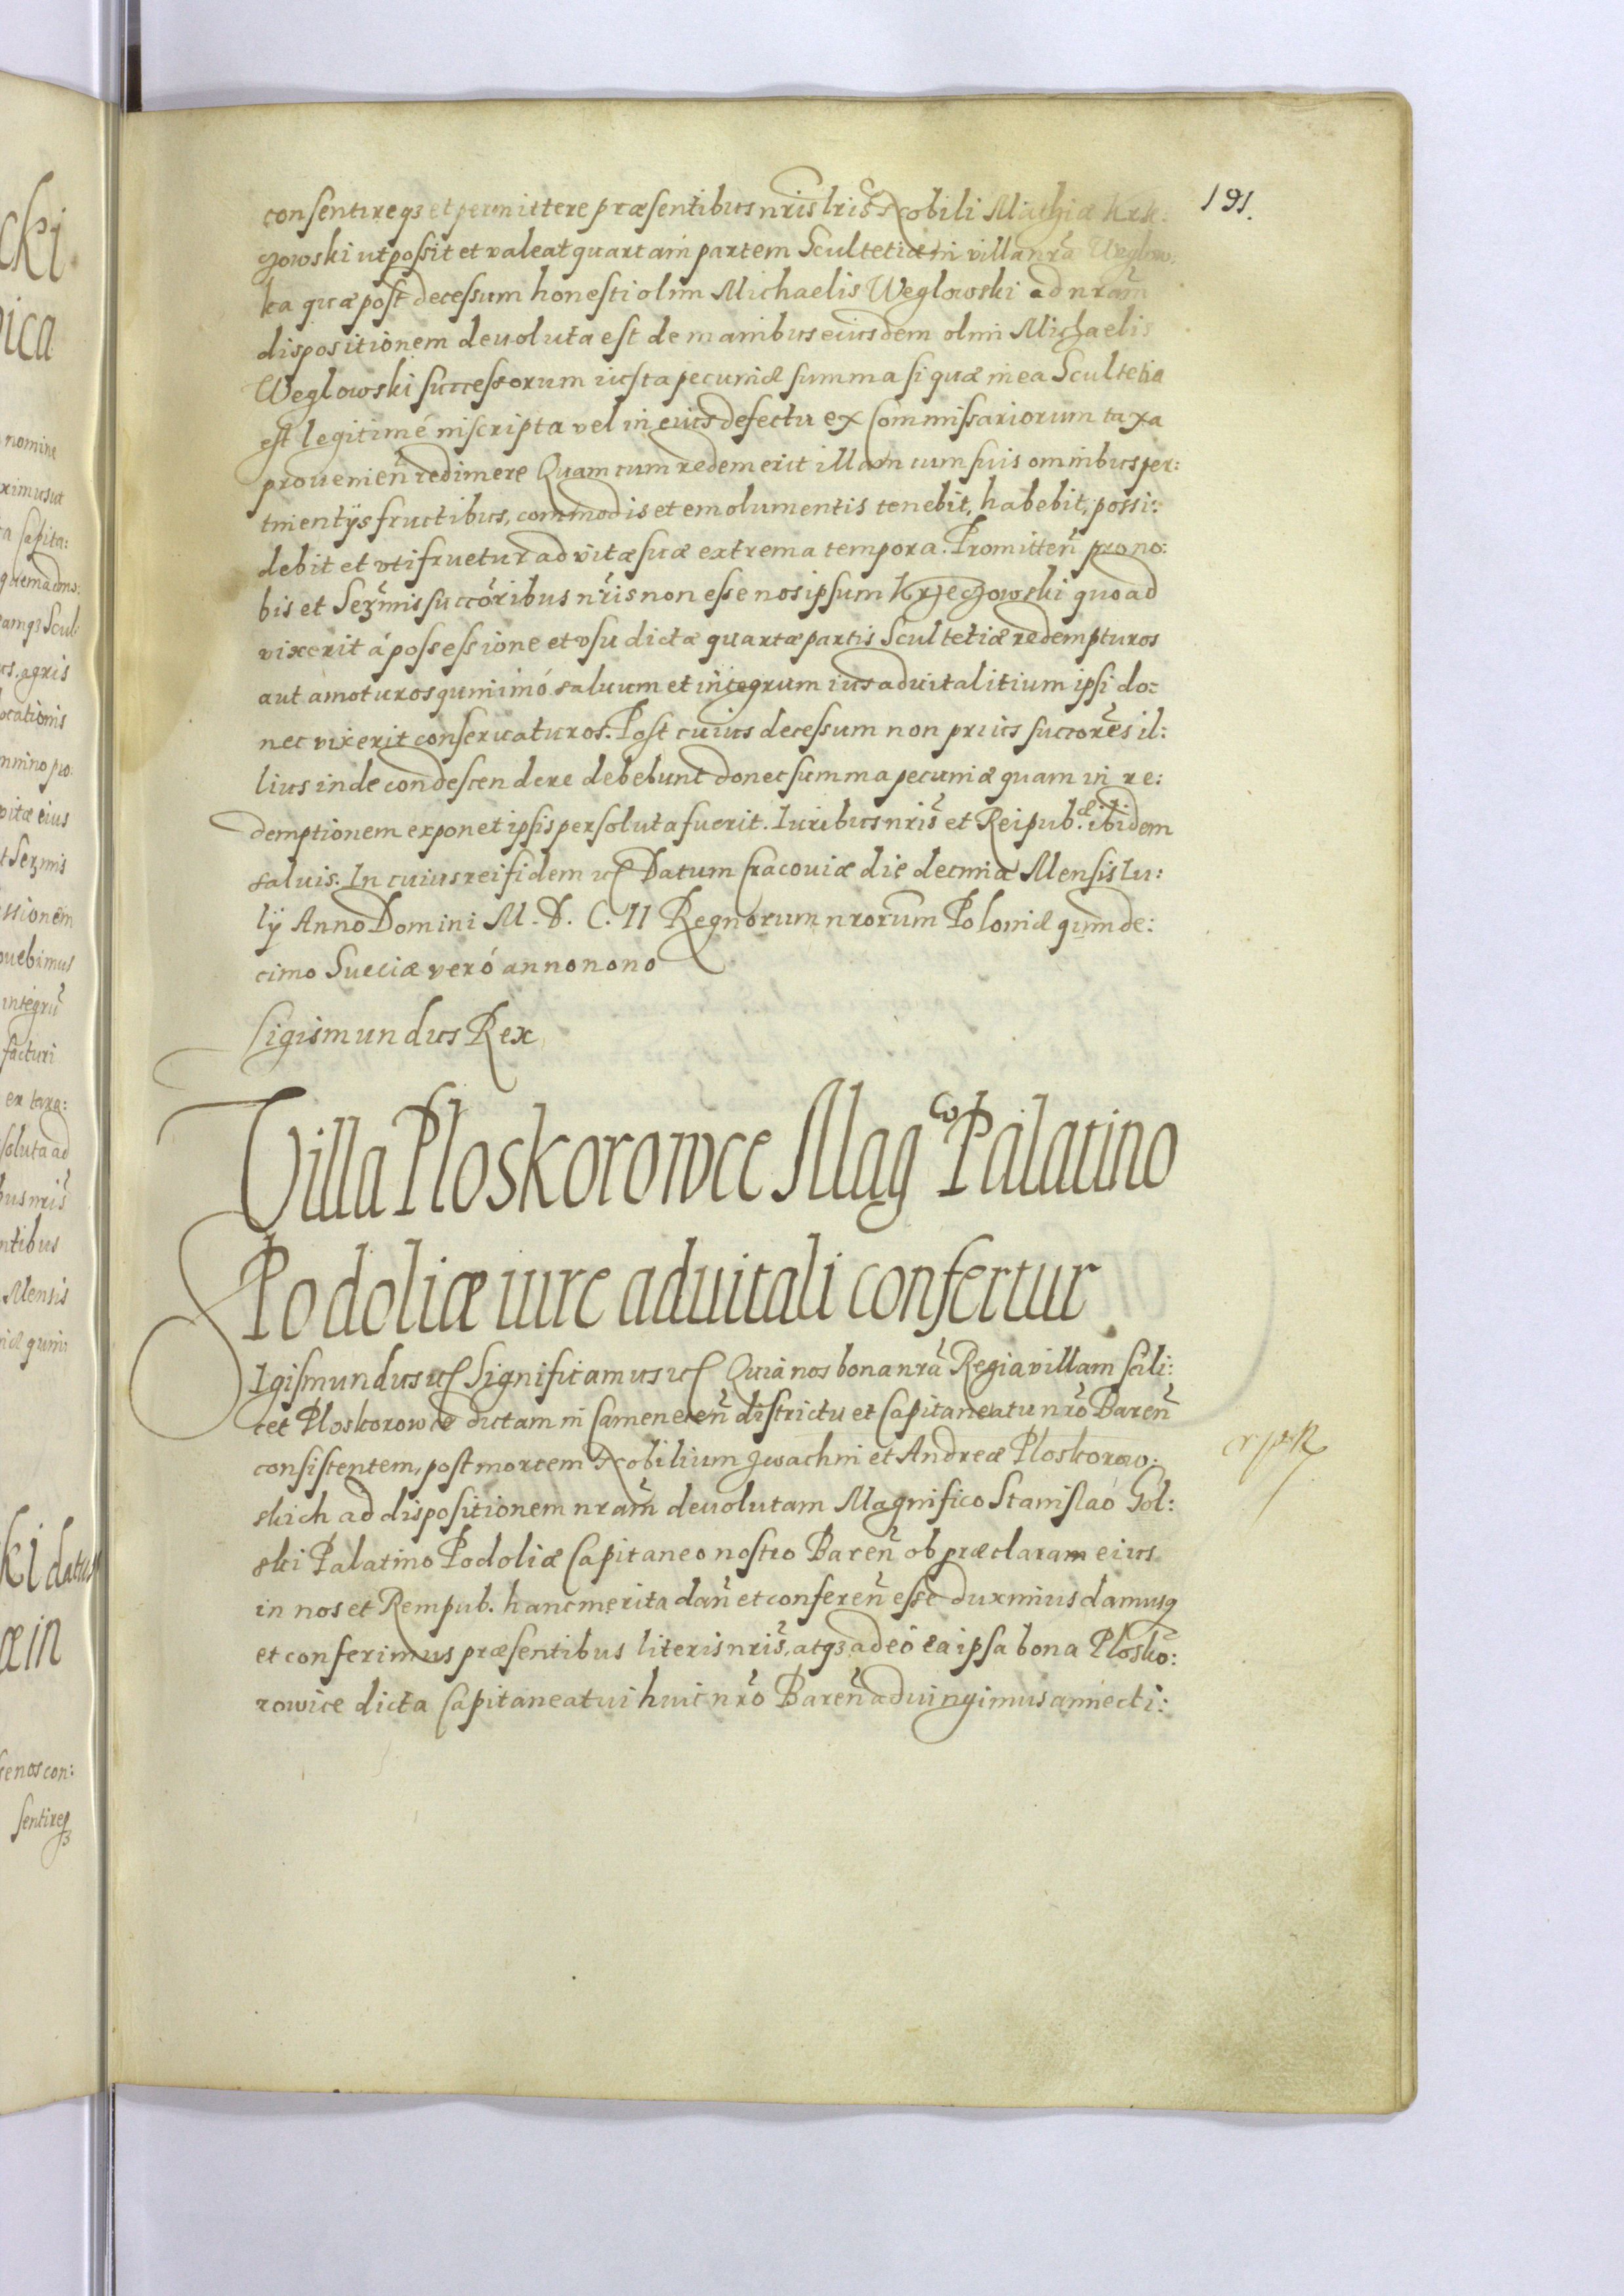 191.
consentireqz et permittere præsentibus nris lris Nobili Mathiæ Krze:
czowski ut possit et valeat quartam partem Scultetiæ in villa nra Weglow:
ka quæ post decessum honesti olim Michaelis Weglowski ad nram
dispositionem deuoluta est de manibus eiusdem olim Michaelis
Weglowski successorum iusta pecuniæ summa si quæ in ea Scultetia
est legitimé inscripta vel in eius defectu ex Commissariorum taxa
prouenien redimere Quam cum redemerit illam cum suis omnibus per:
tinentijs fructibus, commodis et emolumentis tenebit, habebit, possi:
debit et vtifruetur ad vitæ suæ extrema tempora. Promitten pro no:
bis et Sezmis succoribus nris non esse nos ipsum Krzeczowski quoad
vixerit á possessione et vsu dictæ quartæ partis Scultetiæ redempturos
aut amoturos quinimó saluum et integrum ius aduitalitium ipsi do:
nec vixerit conseruaturos. Post cuius decessum non prius succores il:
lius inde condescendere debebunt donec summa pecuniæ quam in re:
demptionem exponet ipsis persoluta fuerit. Iuribus nris et Reipub.æ ibidem
saluis. In cuius rei fidem ꝛc Datum Cracouiæ die decima Mensis Iu:
lij Anno Domini M. D. C. II Regnorum nrorum Poloniæ quinde:
cimo Sueciæ veró anno nono
Sigismundus Rex
Villa Ploskorowce Magco Palatino
Podoliæ iure aduitali confertur
Sigismundus ꝛc Significamus ꝛc Quia nos bona nra Regia villam scili:
cet Ploskorowce dictam in Camenecen districtu et Capitaneatu nro Baren
consistentem, post mortem Nobilium Iwachni et Andreæ Ploskorow:
skich ad dispositionem nram deuolutam Magnifico Stanislao Gol:
ski Palatino Podoliæ Capitaneo nostro Baren ob præclaram eius
in nos et Rempub. hanc merita dan et conferen esse duximus damusq
et conferimus præsentibus literis nris, atqz adeó ea ipsa bona Plosko:
rowice dicta Capitaneatui huic nro Baren aduingimus annecti: